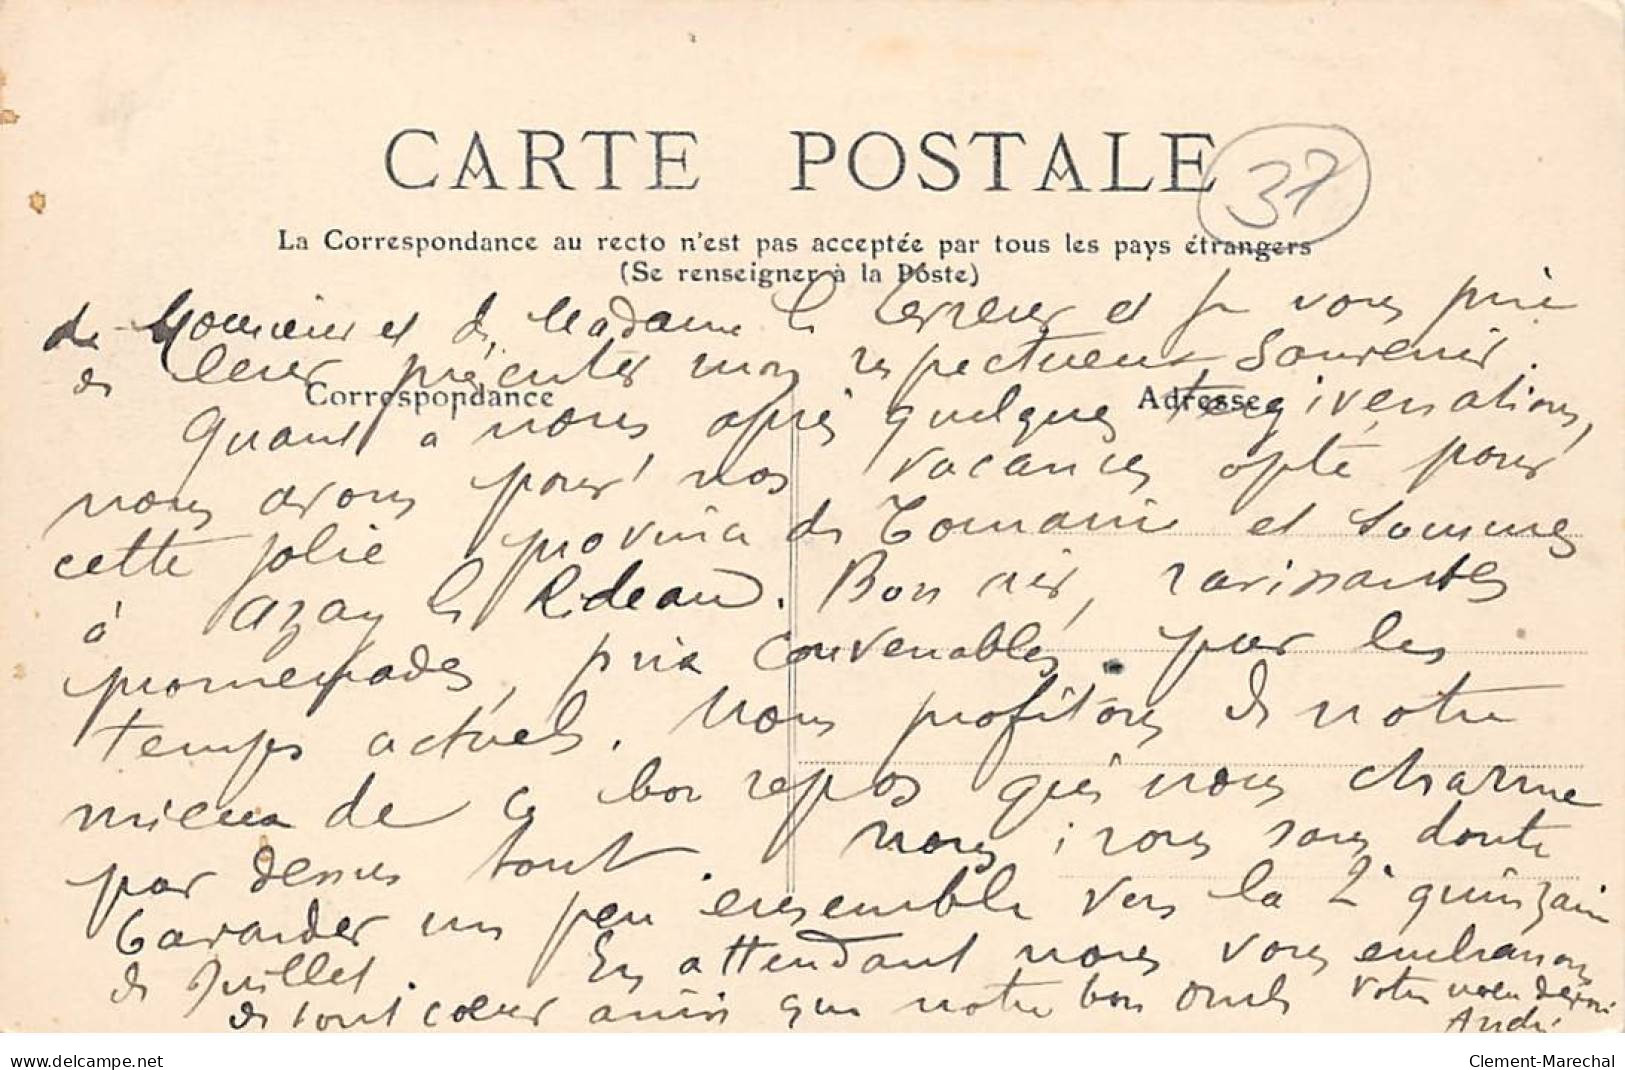 CARTE POSTALE
37
La Correspondance au recto n'est pas acceptée par tous les pays étrangers
(Se renseigner à la Poste)
de Monsieur et de Madame le et je vous prie
de leur présenter mon respectueux souvenir.
Correspondance
Adresse
Quant à nous après quelques tergiversations,
nous avons pour nos vacances opté pour
cette jolie province de Touraine et sommes
à Azay le Rideau. Bon air, ravissantes
promenades, prix convenables par les
temps actuels. Nous profitons de notre
mieux de ce bon repos qui nous charme
par dessus tout. Nous irons sans doute
bavarder un peu ensemble vers la 2e quinzaine
de Juillet. En attendant nous vous embrassons
de tout coeur ainsi que notre bon oncle Votre neveu dévoué
André
www.delcampe.net
Clement-Marechal